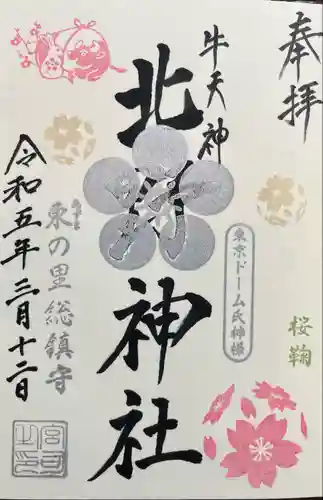 奉拝
牛天神
北野神社
東京ドーム氏神様
桜鞠
東の里総鎮守
令和五年三月十二日